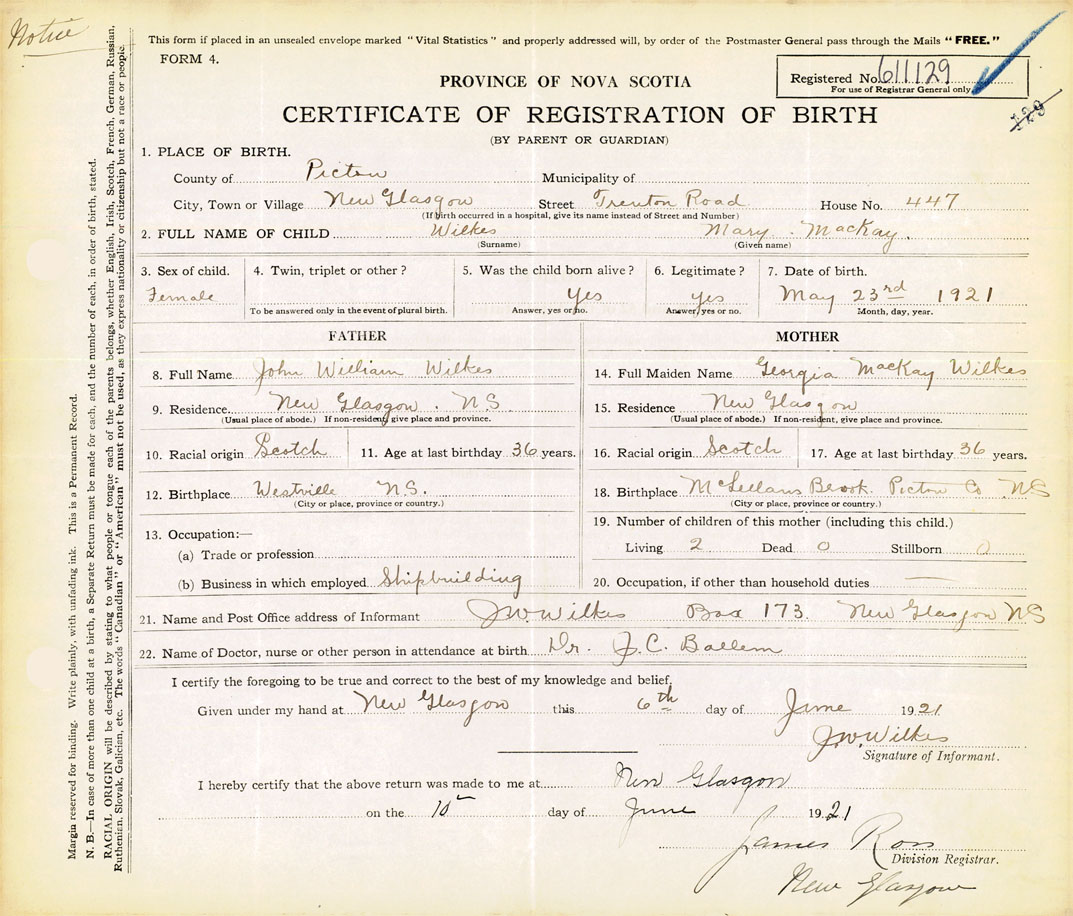 Notice
This form if placed in an unsealed envelope marked "Vital Statistics" and properly addressed will, by order of the Postmaster General pass through the Mails "FREE."
FORM 4.
Registered No. 611129
For use of Registrar General only.
129
PROVINCE OF NOVA SCOTIA
CERTIFICATE OF REGISTRATION OF BIRTH
(BY PARENT OR GUARDIAN)
1. PLACE OF BIRTH.
County of Pictou Municipality of
City, Town or Village New Glasgow Street Trenton Road House No. 447
(If birth occurred in a hospital, give its name instead of Street and Number)
2. FULL NAME OF CHILD Wilkes Mary MacKay.
(Surname) (Given name)
3. Sex of child. 4. Twin, triplet or other? 5. Was the child born alive? 6. Legitimate? 7. Date of birth.
Female Yes yes May 23rd 1921
To be answered only in the event of plural birth. Answer, yes or no. Answer, yes or no. Month, day, year.
FATHER MOTHER
8. Full Name John William Wilkes 14. Full Maiden Name Georgia MacKay Wilkes
9. Residence New Glasgow. N.S. 15. Residence New Glasgow
(Usual place of abode.) If non-resident, give place and province. (Usual place of abode.) If non-resident, give place and province.
10. Racial origin Scotch 11. Age at last birthday 36 years. 16. Racial origin Scotch 17. Age at last birthday 36 years.
12. Birthplace Westville N.S. 18. Birthplace McLellans Brook. Pictou Co NS
(City or place, province or country.) (City or place, province or country.)
13. Occupation:— 19. Number of children of this mother (including this child.)
(a) Trade or profession Living 2 Dead 0 Stillborn 0
(b) Business in which employed Shipbuilding 20. Occupation, if other than household duties —
21. Name and Post Office address of Informant J.W. Wilkes Box 173. New Glasgow NS
22. Name of Doctor, nurse or other person in attendance at birth Dr. J.C. Ballem
I certify the foregoing to be true and correct to the best of my knowledge and belief.
Given under my hand at New Glasgow this 6th day of June 1921
J.W. Wilkes
Signature of Informant.
I hereby certify that the above return was made to me at New Glasgow
on the 10 day of June 1921
James Ross
Division Registrar.
New Glasgow
Margin reserved for binding. Write plainly, with unfading ink. This is a Permanent Record.
N. B.—In case of more than one child at a birth, a Separate Return must be made for each, and the number of each, in order of birth, stated.
RACIAL ORIGIN will be described by stating to what people or tongue each of the parents belongs, whether English, Irish, Scotch, French, German, Russian,
Ruthenian, Slovak, Galician, etc. The words "Canadian" or "American" must not be used, as they express nationality or citizenship but not a race or people.